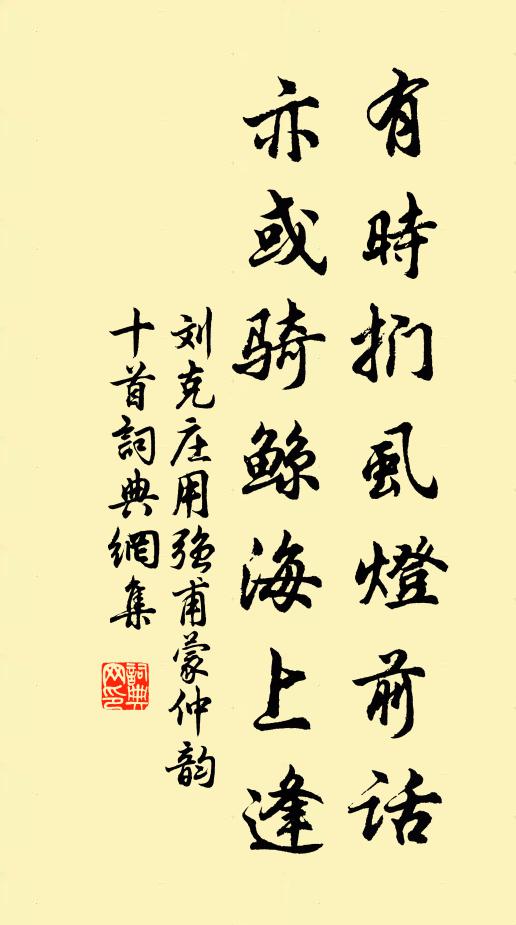 有時捫虱燈前話
亦或騎鯨海上逢
刘克庄用強甫蒙仲韵
十首詞典網集
詞典網印